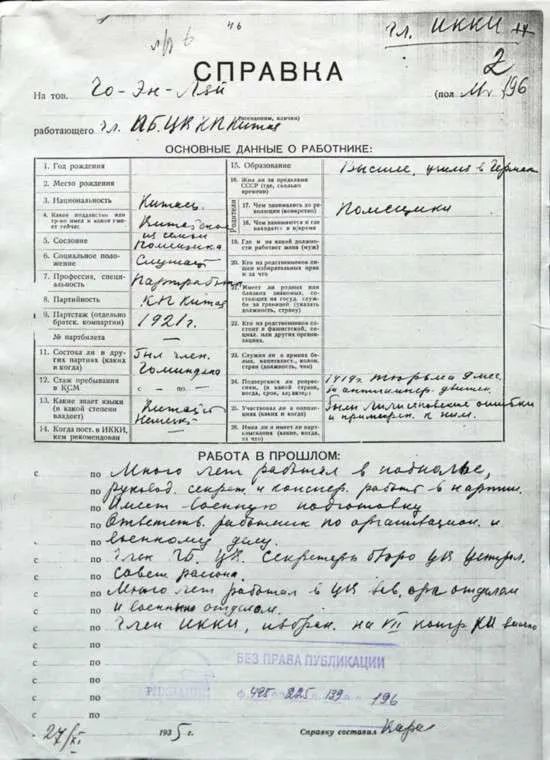 46
гл. ИККИ
СПРАВКА
2
На тов. Чо-Эн-Лай (пол М. 196
(псевдоним, кличка)
работающего чл. ПБ ЦК КП Китая
ОСНОВНЫЕ ДАННЫЕ О РАБОТНИКЕ:
1. Год рождения
2. Место рождения
3. Национальность Китаец
4. Какое подданство или гр-во имел и какое имеет сейчас Китайское
5. Сословие из семьи помещика
6. Социальное положение Служащ
7. Профессия, специальность Партработн
8. Партийность КП Китая
9. Партстаж (отдельно братск. компартии) 1921 г.
№ партбилета —
11. Состоял ли в других партиях (каких и когда) был член. Гоминдана
12. Стаж пребывания в КСМ с — по —
13. Какие знает языки (в какой степени владеет) Китайск Немецк
14. Когда пост. в ИККИ, кем рекомендован
15. Образование Высшее, учился в Герман
16. Жил ли за пределами СССР (где, сколько времени)
Родители
17. Чем занимались до революции (конкретно) Помещики
18. Чем занимаются и где находятся в н/время
19. Где и на какой должности работает жена (муж)
20. Кто из родственников лишен избирательных прав и за что
21. Имеет ли родных или близких знакомых, состоящих на госуд. службе за границей (указать должность, страну)
22. Кто из родственников состоит в фашистской, социал. или других организациях.
23. Служил ли в армиях белых, капиталист., колон. стран (должность, чин)
24. Подвергался ли репрессиям, (в какой стране, когда, срок, характер.) 1919 г. тюрьма мес. за антиимпер. движен.
25. Участвовал ли в оппозициях (каких и когда) были лилисяновские ошибки и примирен. к ним.
26. Имел ли и имеет ли партвзыскания (какие, когда, за что)
РАБОТА В ПРОШЛОМ:
с по Много лет работал в подполье,
с по руковод. секрет. и конспир. работ в партии.
с по Имеет военную подготовку
с по Ответств. работник по организацион. и
с по военному делу.
с по Член ПБ ЦК. Секретарь бюро ЦК централ.
с по совет района.
с по Много лет работал в ЦК зав. орг отделом
с по и военным отделом.
с по Член ИККИ, избран. на VII конгр КИ
с по
с по БЕЗ ПРАВА ПУБЛИКАЦИИ
с по 495 225 139 196
с по
27/XI 1935 г. Справку составил